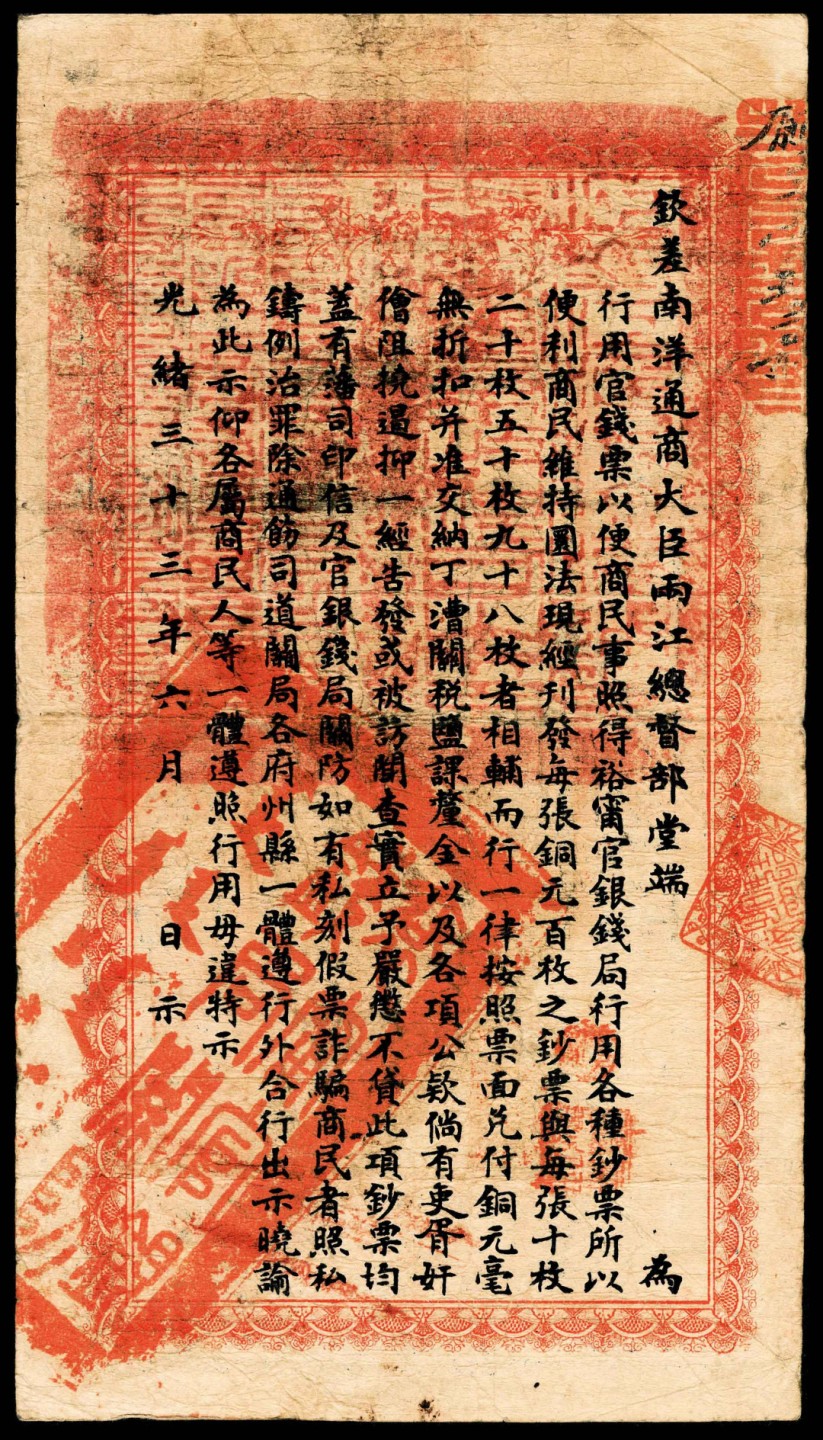 欽差南洋通商大臣兩江總督部堂端 為
行用官錢票以便商民事照得裕甯官銀錢局行用各種鈔票所以
便利商民維持圜法現經刊發每張銅元百枚之鈔票與每張十枚
二十枚五十枚九十八枚者相輔而行一律按照票面兑付銅元毫
無折扣并准交納丁漕關稅鹽課釐金以及各項公欵倘有吏胥奸
儈阻撓遏抑一經告發或被訪聞查實立予嚴懲不貸此項鈔票均
蓋有藩司印信及官銀錢局關防如有私刻假票詐騙商民者照私
鑄例治罪除通飭司道關局各府州縣一體遵行外合行出示曉諭
為此示仰各屬商民人等一體遵照行用毋違特示
光緒三十三年六月 日示